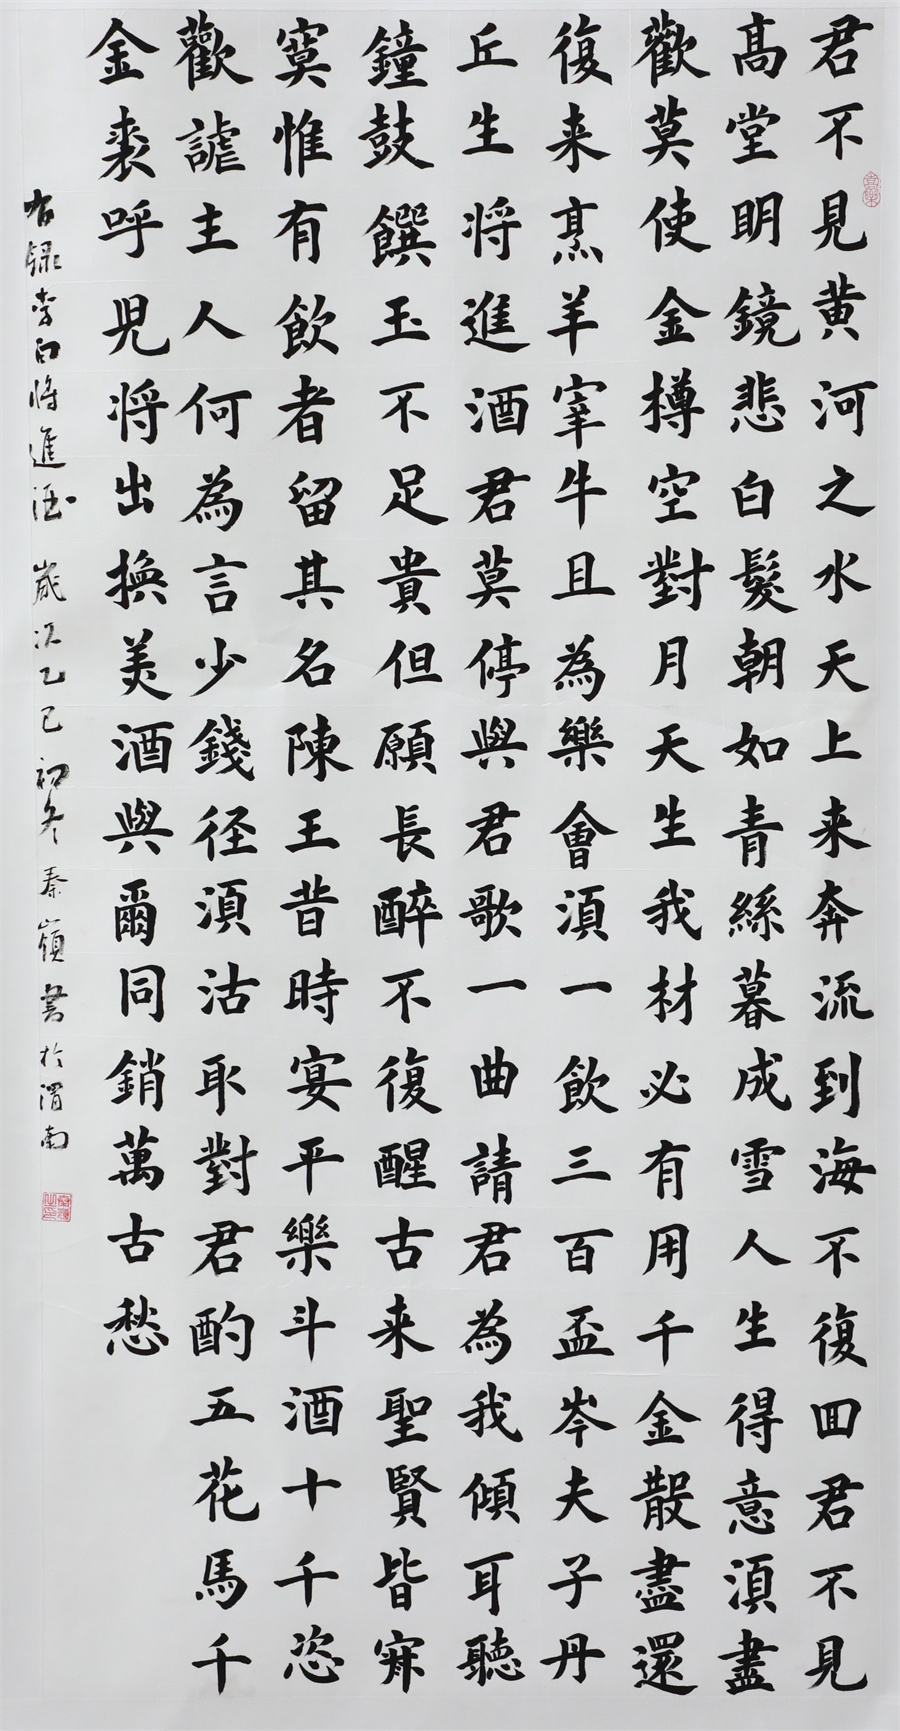 君不見黄河之水天上来奔流到海不復囬君不見
髙堂明鏡悲白髮朝如青絲暮成雪人生得意須盡
歡莫使金樽空對月天生我材必有用千金散盡還
復来烹羊宰牛且為樂會須一飲三百盃岑夫子丹
丘生将進酒君莫停與君歌一曲請君為我傾耳聽
鐘鼓饌玉不足貴但願長醉不復醒古来聖賢皆寂
寞惟有飲者留其名陳王昔時宴平樂斗酒十千恣
歡謔主人何為言少錢径須沽取對君酌五花馬千
金裘呼兒将出換美酒與爾同銷萬古愁
右録李白将進酒 歲次乙巳初冬秦嶺書於渭南